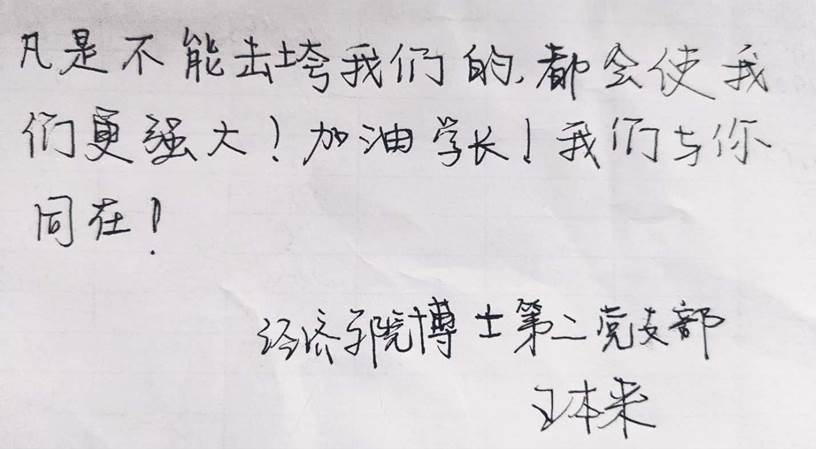 凡是不能击垮我们的,都会使我
们更强大!加油学长!我们与你
同在!
经济学院博士第二党支部
王本来